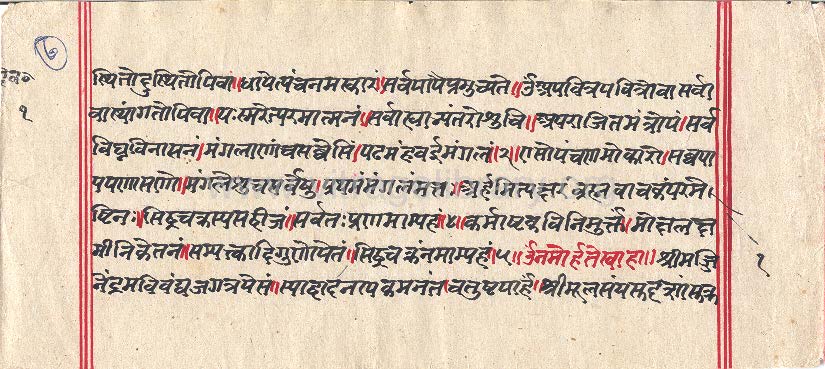 स्थितोदुस्थितोपिवा॥ध्यायेत्पंचनमस्कारं॥सर्वपापैप्रमुच्यते॥१॥अपवित्रपवित्रोवासर्वा
वास्थांगतोपिवा॥यःस्मरेत्परमात्मनं॥सर्वाह्याभ्यंतरोशुचि॥अपराजितमंत्रोपं॥सर्व
विघ्नविनासनं॥मंगलाणंचसव्वेसिं॥पढमंहवईमंगलं॥२॥एसोपंचणमोकारो॥सव्वपा
पपणासणो॥मंगलेशुचसर्वेषु॥प्रथमंमंगलंमतः॥अर्हमित्यक्षरंब्रह्मवाचकंपरमे
ष्टिनः॥सिद्धचक्रस्यसद्बीजं॥सर्वतःप्रणमाम्यहं॥४॥कर्माष्टकविनिमुर्त्तं॥मोक्षलक्ष
मीनिकेतनं॥सम्यक्त्कादिगुणोपेतं॥सिद्धचक्रंनमाम्यहं॥५॥उँनमोर्हतेस्वाहा॥श्रीमज्जि
नेंद्रमविवंद्यजगत्रयेसं॥स्याद्वादनायकमनंतचतुष्टयार्हं॥श्रीमूलसंघ
७
१
१